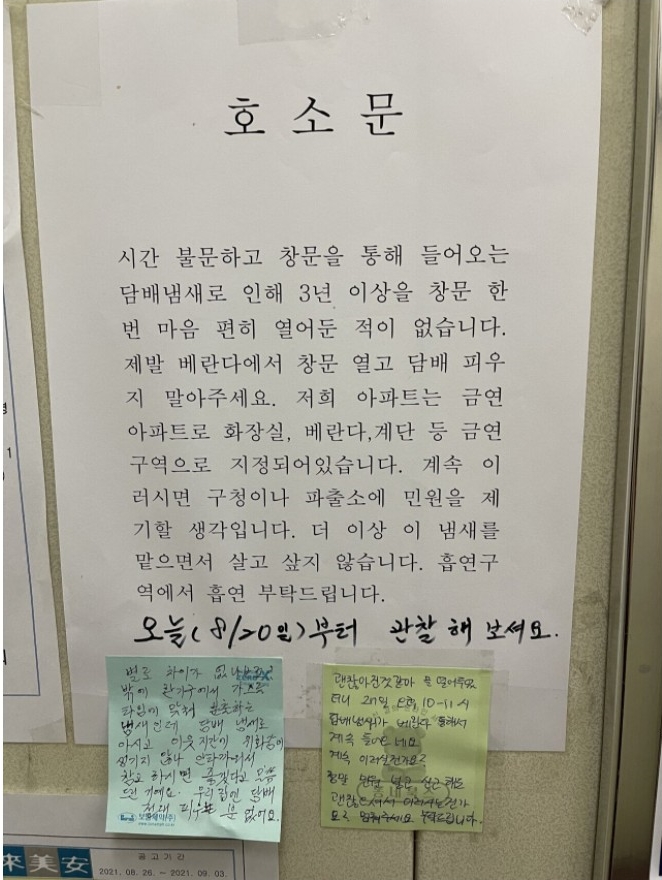 호소문
시간 불문하고 창문을 통해 들어오는
담배냄새로 인해 3년 이상을 창문 한
번 마음 편히 열어둔 적이 없습니다.
제발 베란다에서 창문 열고 담배 피우
지 말아주세요. 저희 아파트는 금연
아파트로 화장실, 베란다,계단 등 금연
구역으로 지정되어있습니다. 계속 이
러시면 구청이나 파출소에 민원을 제
기할 생각입니다. 더 이상 이 냄새를
맡으면서 살고 싶지 않습니다. 흡연구
역에서 흡연 부탁드립니다.
오늘(8/20일)부터 관찰해 보셔요.
별로 차이가 없나보죠?
밖에 환가구에서
타임에 맞춰 훈증하는
냄새인데 담배 냄새로
아시고 이웃지간이 위화송이
생기지 않나 안타까워서
참고 하시면 좋겠다고 말씀
드린 거예요. 우리집엔 담배
전혀 피우는 분 없어요.
괜찮아진것같아 문 열어두었
더니 21일 오후 10-11시
담배냄새가 베란다 통해서
계속 들어오네요
계속 이러실건가요?
정말
괜찮으셔서 이러시는건가
요? 멈춰주세요 부탁드립니다.
來美安
공고기간
2021. 08. 26. ~ 2021. 09. 03.